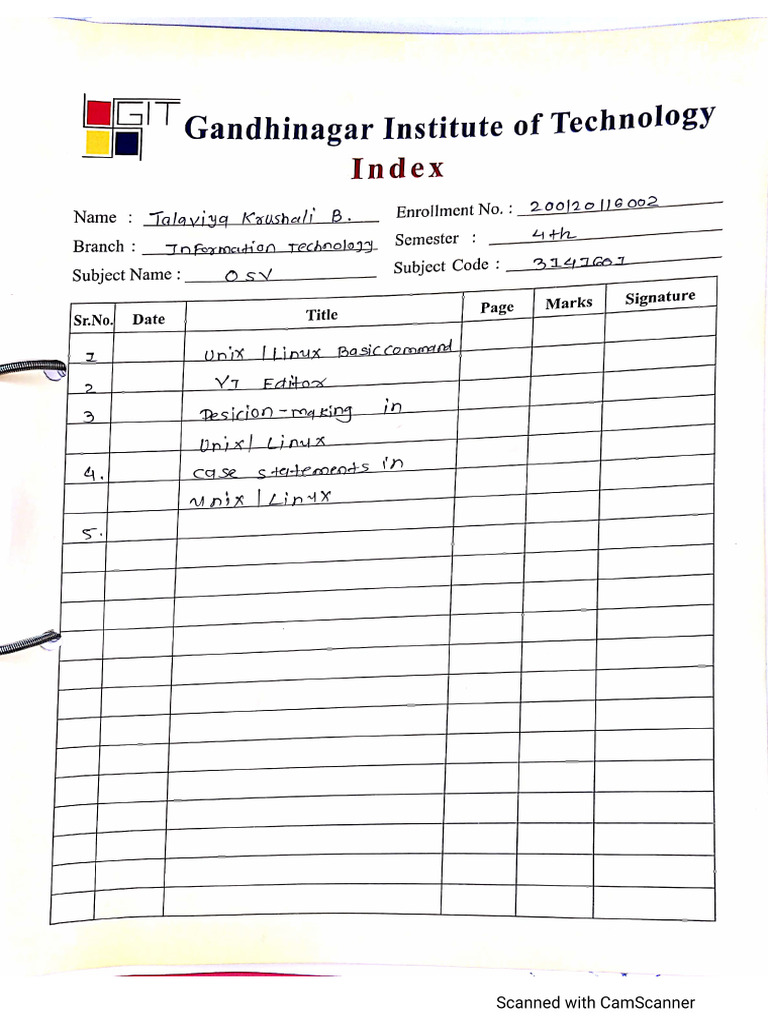 GIT
Gandhinagar Institute of Technology
Index
Name : Talaviya Krushali B. Enrollment No. : 200120116002
Branch : Information Technology Semester : 4th
Subject Name : OSV Subject Code : 3141601
Sr.No. Date Title Page Marks Signature
1 Unix | Linux Basic command
2 VI Editor
3 Desicion-making in
Unix | Linux
4. case statements in
unix | Linux
5.
Scanned with CamScanner